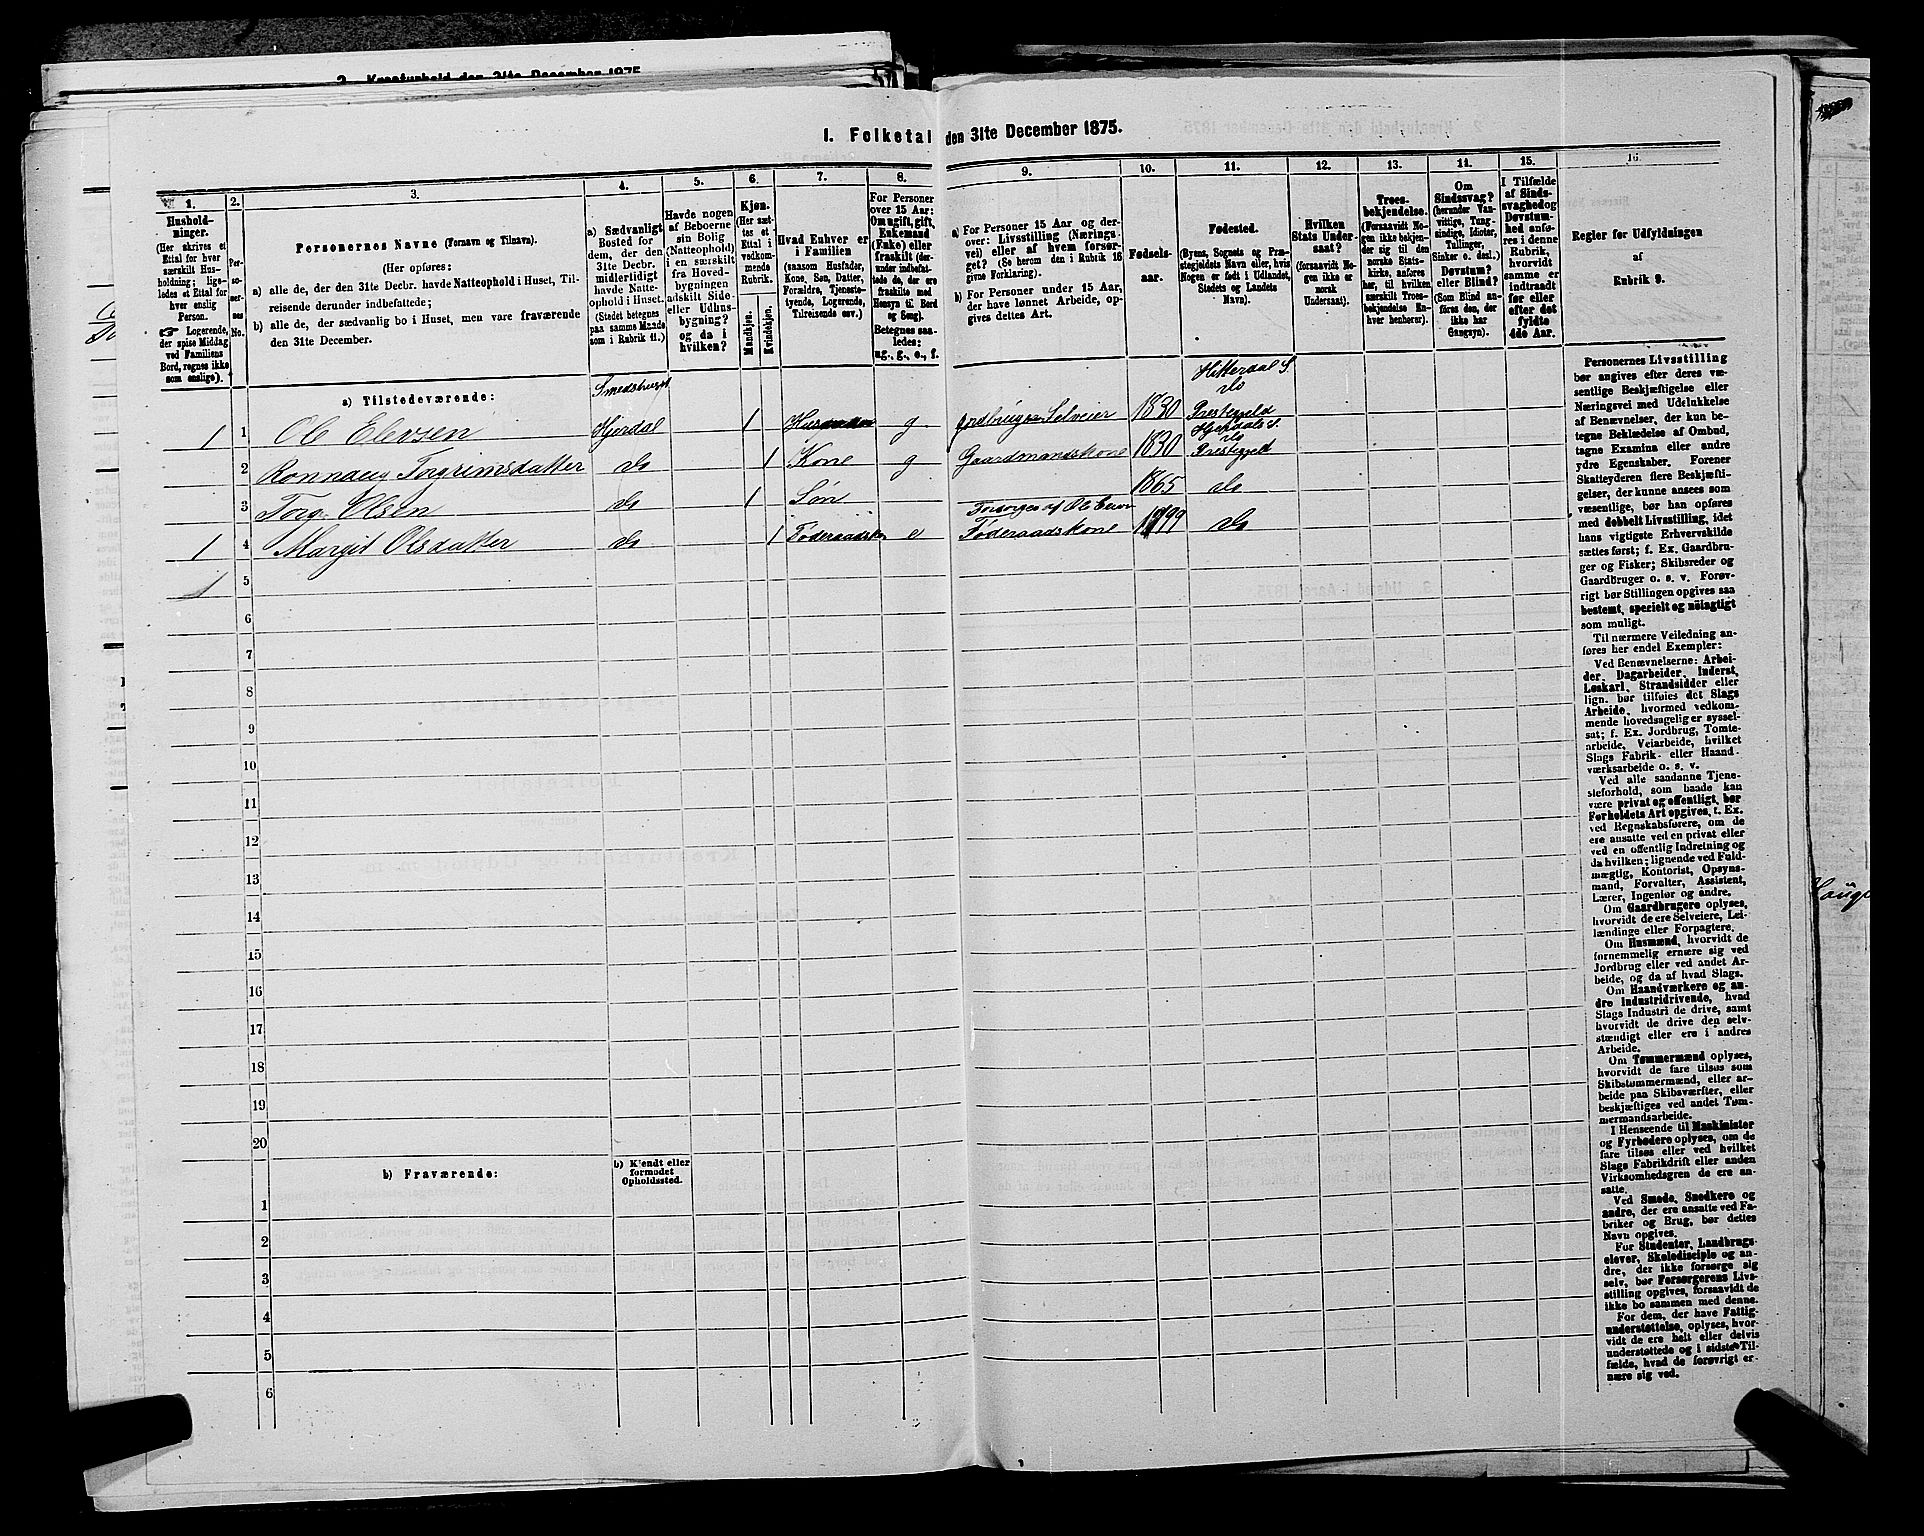 2. Kreaturhold den 31te December 1875
I. Folketal den 31te December 1875.
1.
Hushold-
ninger.
(Her skrives et
Ettal for hver
særskilt Hus-
holdning; lige-
ledes et Ettal for
hver enslig
Person.
☞ Logerende,
der spise Middag
ved Familiens
Bord, regnes ikke
som enslige).
2.
Per-
so-
ner-
nes
No.
3.
Personernes Navne (Fornavn og Tilnavn).
(Her opføres:
a) alle de, der den 31te Decbr. havde Natteophold i Huset, Til-
reisende derunder indbefattede;
b) alle de, der sædvanlig bo i Huset, men vare fraværende
den 31te December.
4.
a) Sædvanligt
Bosted for
dem, der den
31te Decbr.
midlertidigt
havde Natte-
ophold i Huset.
(Stedet betegnes
paa samme Maade
som i Rubrik 11.)
5.
Havde nogen
af Beboerne
sin Bolig
(Natteophold)
i en særskilt
fra Hoved-
bygningen
adskilt Side-
eller Udhus-
bygning?
og da i
hvilken?
6.
Kjøn.
(Her sæt-
tes et
Ettal i
vedkom-
mende
Rubrik.
Mandkjøn.
Kvindekjøn.
7.
Hvad Enhver er
i Familien
(saasom Husfader,
Kone, Søn, Datter,
Forældre, Tjeneste-
tyende, Logerende,
Tilreisende osv.)
8.
For Personer
over 15 Aar:
Om ugift, gift,
Enkemand
(Enke) eller
fraskilt (der-
under indbefat-
tede de, der ere
fraskilte med
Hensyn til Bord
og Seng).
Betegnes saa-
ledes:
ug., g., e., f.
9.
a) For Personer 15 Aar og der-
over: Livsstilling (Nærings-
vei) eller af hvem forsør-
get? (Se herom den i Rubrik 16
givne Forklaring).
b) For Personer under 15 Aar,
der have lønnet Arbeide, op-
gives dettes Art.
10.
Fødsels-
aar.
11.
Fødested.
(Byens, Sognets og Præ-
stegjeldets Navn eller, hvis
Nogen er født i Udlandet,
Stedets og Landets
Navn).
12.
Hvilken
Stats Under-
saat?
(forsaavidt No-
gen ikke er
norsk
Undersaat).
13.
Troes-
bekjendelse.
(Forsaavidt No-
gen ikke bekjen-
der sig til den
norske Stats-
kirke, anføres
her, til hvilken
særskilt Troes-
bekjendelse En-
hver henhører).
14.
Om
Sindssvag?
(herunder Van-
vittige, Tung-
sindige, Idioter,
Tullinger,
Sinker o. desl.)
Døvstum?
eller Blind?
(Som Blind an-
føres den, der
ikke har
Gangsyn).
15.
I Tilfælde
af Sinds-
svaghed og
Døvstum-
hed anfø-
res i denne
Rubrik,
hvorvidt
samme er
indtraadt
før eller
efter det
fyldte
4de Aar.
16.
Regler for Udfyldningen
af
Rubrik 9.
a) Tilstedeværende:
Smedshuset
Hitterdal S.
do
1 1 Ole Elevsen Hjerdal 1 g Jordbruger Selveier 1830 Prestegjeld
Hjerdals S.
do
2 Ronnaug Torgrimsdatter do 1 Kone g Gaardmandskone 1830 Prestegjeld
3 Olsen do 1 Søn 1865 do
Forsørges af Ole
1 4 Margit Olsdatter do 1 Føderaadskon e Føderaadskone 1799 do
1 5
6
7
8
9
10
11
12
13
14
15
16
17
18
19
20
b) Fraværende:
b) Kjendt eller
formodet
Opholdssted.
1
2
3
4
5
6
Personernes Livsstilling
bør angives efter deres væ-
sentlige Beskjæftigelse eller
Næringsvei med Udelukkelse
af Benævnelser, der kun be-
tegne Beklædelse af Ombud,
tagne Examina eller andre
ydre Egenskaber. Forener
Skatteyderen flere Beskjæfti-
gelser, der kunne ansees som
væsentlige, bør han opføres
med dobbelt Livsstilling, idet
hans vigtigste Erhvervskilde
sættes først; f. Ex. Gaardbru-
ger og Fisker; Skibsreder og
Gaardbruger o. s. v. Forøv-
rigt bør Stillingen opgives saa
bestemt, specielt og nøiagtigt
som muligt.
Til nærmere Veiledning an-
føres her endel Exempler:
Ved Benævnelserne: Arbei-
der, Dagarbeider, Inderst,
Løskarl, Strandsidder eller
lign. bør tilføies det Slags
Arbeide, hvormed vedkom-
mende hovedsagelig er syssel-
sat; f. Ex. Jordbrug, Tomte-
arbeide, Veiarbeide, hvilket
Slags Fabrik- eller Haand-
værksarbeide o. s. v.
Ved alle saadanne Tjene-
steforhold, som baade kan
være privat og offentligt, bør
Forholdets Art opgives, t. Ex.
ved Regnskabsførere, om de
ere ansatte ved en privat eller
ved en offentlig Indretning og
da hvilken; lignende ved Fuld-
mægtig, Kontorist, Opsyns-
mand, Forvalter, Assistent,
Lærer, Ingeniør og andre.
Om Gaardbrugere oplyses,
hvorvidt de ere Selveiere, Lei-
lændinge eller Forpagtere.
Om Husmænd, hvorvidt de
fornemmelig ernære sig ved
Jordbrug eller ved andet Ar-
beide, og da af hvad Slags.
Om Haandværkere og an-
dre Industridrivende, hvad
Slags Industri de drive, samt
hvorvidt de drive den selv-
stændigt eller ere i andres
Arbeide.
Om Tømmermænd oplyses,
hvorvidt de fare tilsøs som
Skibstømmermænd, eller ar-
beide paa Skibsværfter, eller
beskjæftiges ved andet Tøm-
mermandsarbeide.
I Henseende til Maskinister
og Fyrbødere oplyses, om de
fare tilsøs eller ved hvilket
Slags Fabrikdrift eller anden
Virksomhedsgren de ere an-
satte.
Ved Smede, Snedkere og
andre, der ere ansatte ved Fa-
briker og Brug, bør dettes
Navn opgives.
For Studenter, Landbrugs-
elever, Skoledisciple og an-
dre, der ikke forsørge sig
selv, bør Forsørgerens Livs-
stilling opgives, forsaavidt de
ikke bo sammen med denne.
For dem, der have Fattig-
understøttelse, oplyses, hvor-
vidt de ere helt eller delvis
understøttede og i sidste Til-
fælde, hvad de forøvrigt er-
nære sig ved.